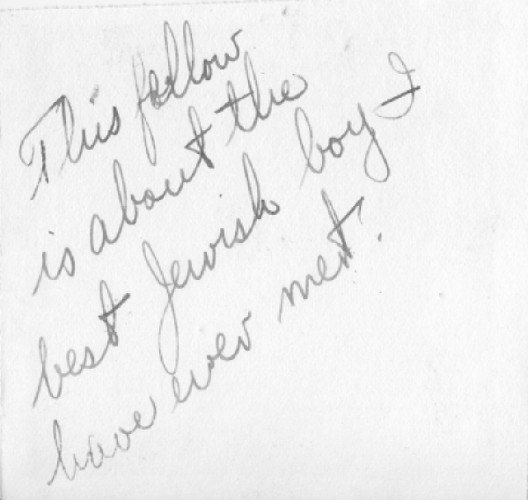 This fellow
is about the
best Jewish boy I
have ever met.